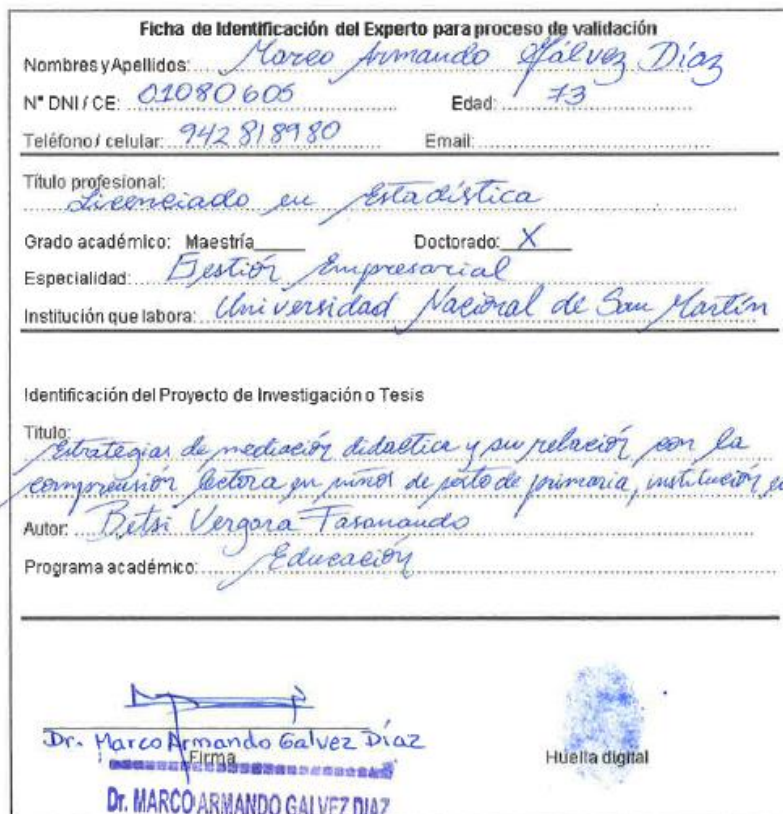 Ficha de Identificación del Experto para proceso de validación
Nombres y Apellidos: Marco Armando Gálvez Díaz
N° DNI / CE: 01080605 Edad: 73
Teléfono / celular: 942818980 Email:
Título profesional:
Licenciado en Estadística
Grado académico: Maestría Doctorado: X
Especialidad: Gestión Empresarial
Institución que labora: Universidad Nacional de San Martín
Identificación del Proyecto de Investigación o Tesis
Título:
Estrategias de mediación didactica y su relación con la
comprensión lectora en niños de sexto de primaria, institución
Autor: Betsi Vergara Fasanando
Programa académico: Educación
Dr. Marco Armando Galvez Díaz
Firma Huella digital
Dr. MARCO ARMANDO GALVEZ DIAZ